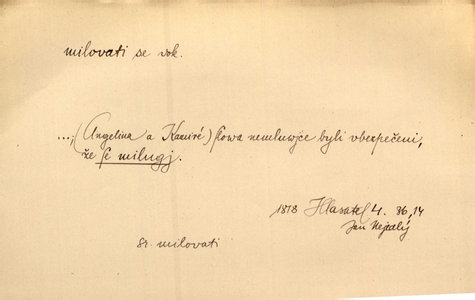 milovati se vok.
...; (Angelina a Kamiré) slowa nemluwjce byli vbezpečeni,
že se milugj.
1818 Hlasatel 4. 36,14
Jan Nejedlý
Sr. milovati